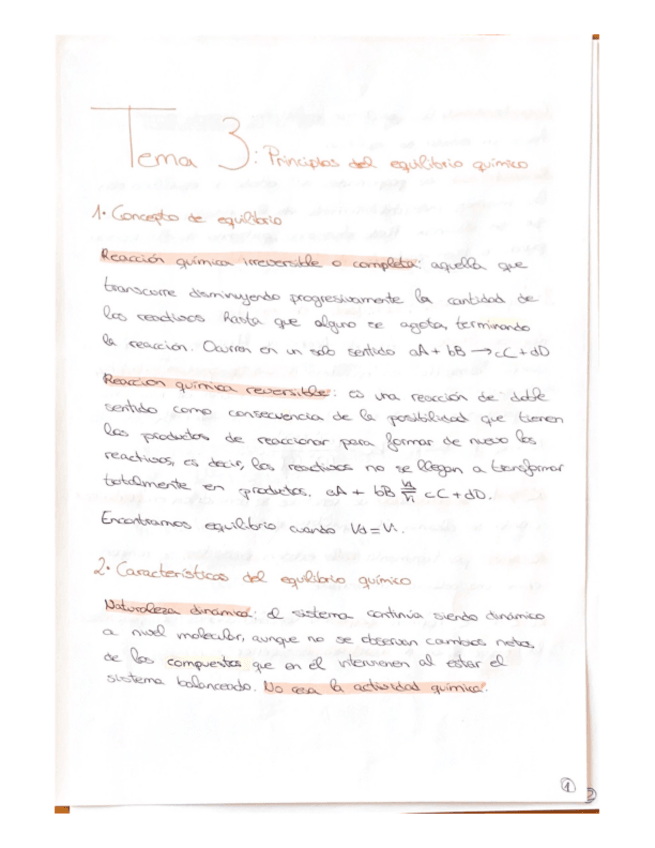 Tema 3: Principios del equilibrio químico
1. Concepto de equilibrio
Reacción química irreversible o completa: aquella que
transcurre disminuyendo progresivamente la cantidad de
los reactivos hasta que alguno se agota, terminando
la reacción. Ocurren en un solo sentido aA + bB → cC + dD
Reacción química reversible: es una reacción de doble
sentido como consecuencia de la posibilidad que tienen
los productos de reaccionar para formar de nuevo los
reactivos, es decir, los reactivos no se llegan a transformar
totalmente en productos. aA + bB ⇌ cC + dD.
Vd
Vi
Encontramos equilibrio cuando Vd = Vi.
2. Características del equilibrio químico
Naturaleza dinámica: el sistema continúa siendo dinámico
a nivel molecular, aunque no se observan cambios netos,
de los compuestos que en él intervienen al estar el
sistema balanceado. No cesa la actividad química.
1
2